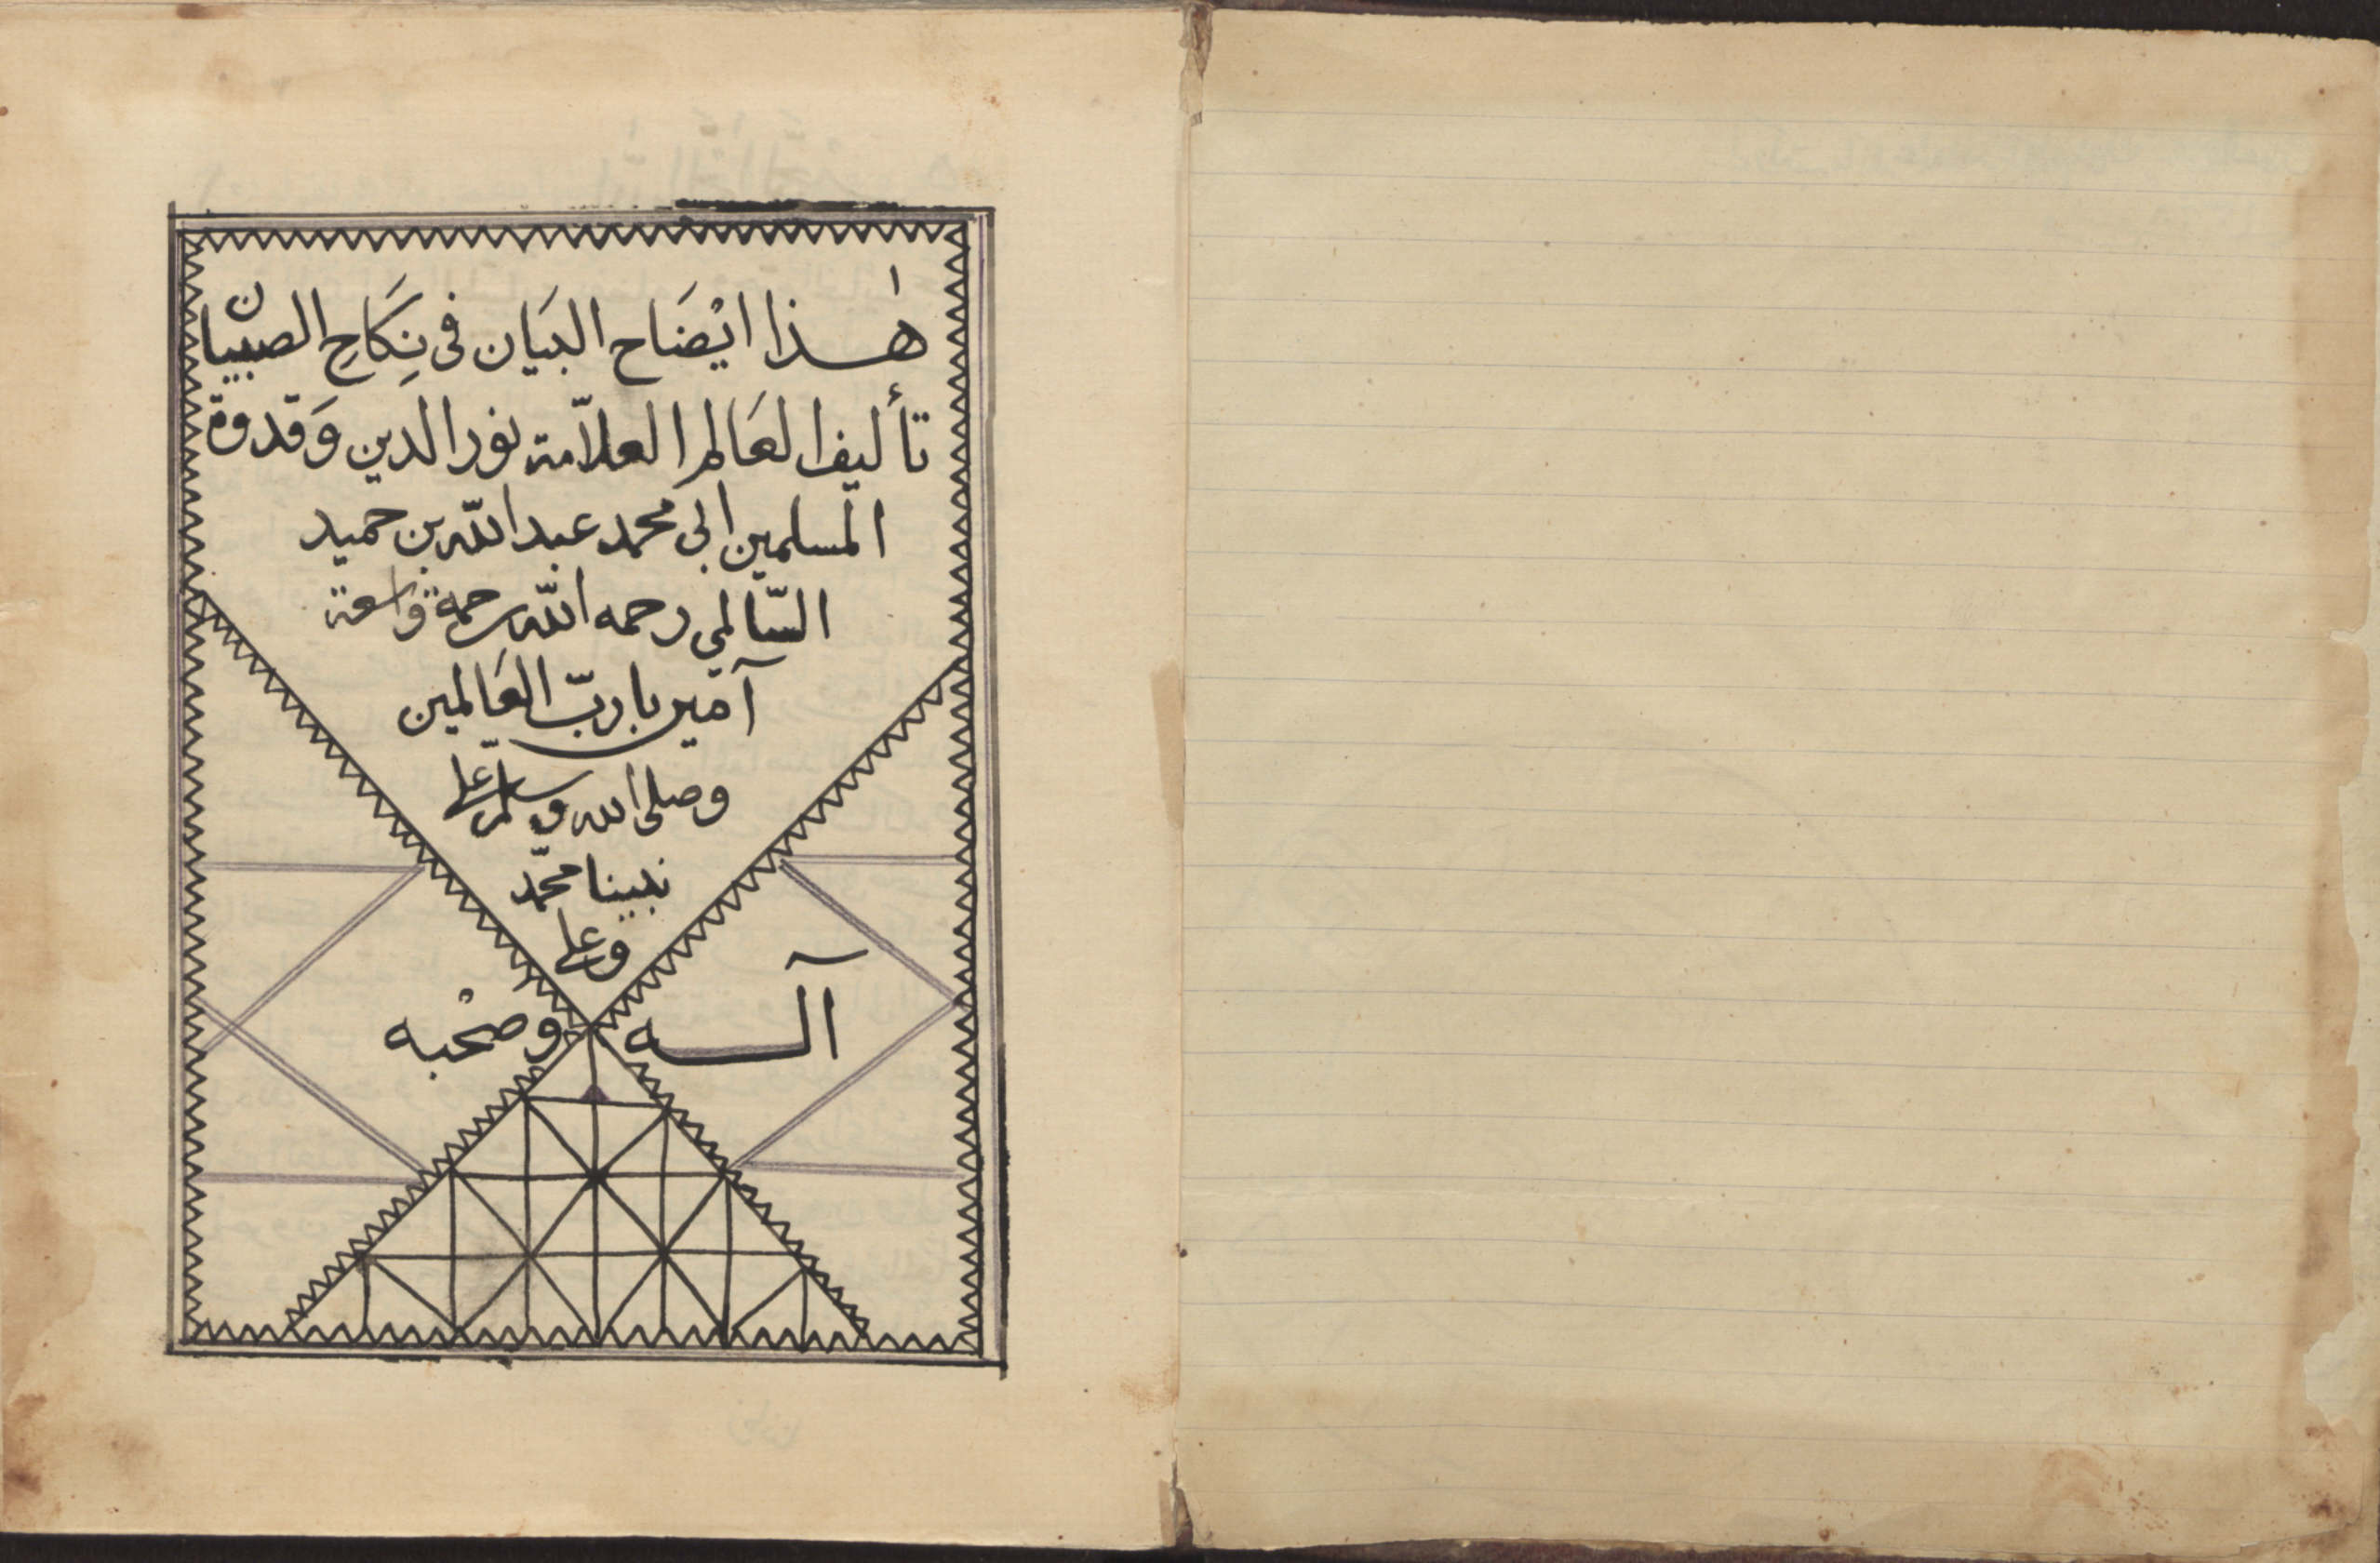 هٰذا ايْضَاح البَيَان فى نِكَاحِ الصبيان
تأليف العَالم العلاّمة نور الدين وَقدوة
المسلمين ابى محمد عبد اللّه بن حميد
السّالمي رحمه اللّه رحمة واسعة
آمين يا ربّ العَالمين
وصلى الله وسلم على
نبينا محمّد
وعلى
آلــه وصحْبه